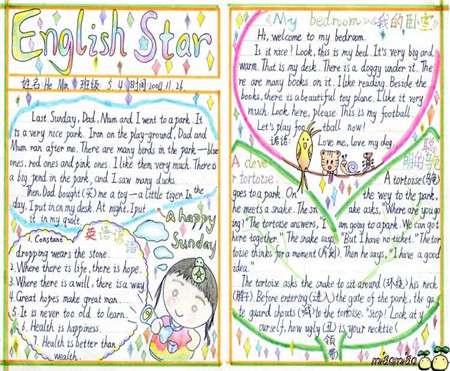 English Star
姓名: He Min 班级 5.4 时间 2004.11.26.
Last Sunday, Dad, Mum and I went to a park. It
is a very nice park. I ran on the play-ground, Dad and
Mum ran after me. There are many birds in the park—blue
ones, red ones and pink ones. I like them very much. There is
a big pond in the park, and I saw many ducks.
Then Dad bought (买) me a toy—a little tiger. In the
day, I put it on my desk. At night, I put
it in my quilt.
A happy
Sunday
英语谚语
1. Constant
dropping wears the stone.
2. Where there is life, there is hope.
3. Where there is a will, there is a way
4. Great hopes make great man.
5. It is never too old to learn.
6. Health is happiness.
7. Health is better than
wealth.
My bedroom 我的卧室
Hi, welcome to my bedroom.
Is it nice? Look, this is my bed. It's very big and
warm. That is my desk. There is a doggy under it. The
re are many books on it. I like reading. Beside the
books, there is a beautiful toy plane. I like it very
much. Look here, please. This is my football.
Let's play football now!
谚语: Love me, love my dog.
A clever tortoise
聪明的乌龟
A tortoise (乌龟)
goes to a park. On the way to the park,
he meets a snake. The snake asks, "Where are you go
ing?" The tortoise answers, "I am going to a park. We can go t
here together." The snake says, "But I have no ticket." The tor
toise thinks for a moment (片刻). Then he says, "I have a good
idea."
The tortoise asks the snake to sit around (环绕) his neck
(脖子). Before entering (进入) the gate of the park, the ga
te guard shouts (喊) to the tortoise: "Stop! Look at y
ourself, how ugly (丑) is your necktie (
领带)
miaomiao